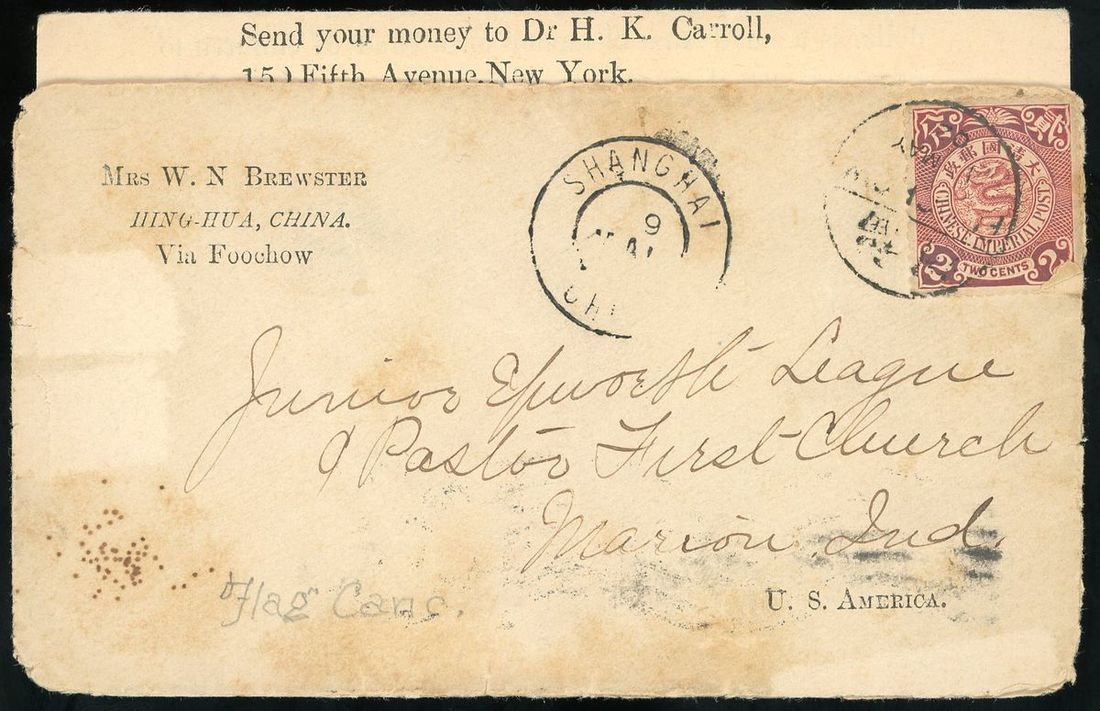 Send your money to Dr H. K. Carroll,
Fifth Avenue, New York.
MRS W. N BREWSTER
HING-HUA, CHINA.
Via Foochow
SHANGHAI
9
CHI
MAY
貳 分
大清國郵政
CHINESE IMPERIAL POST
2 TWO CENTS 2
Junior Epworth League
Pastor First Church
Marion, Ind.
U. S. AMERICA.
Flag Canc.